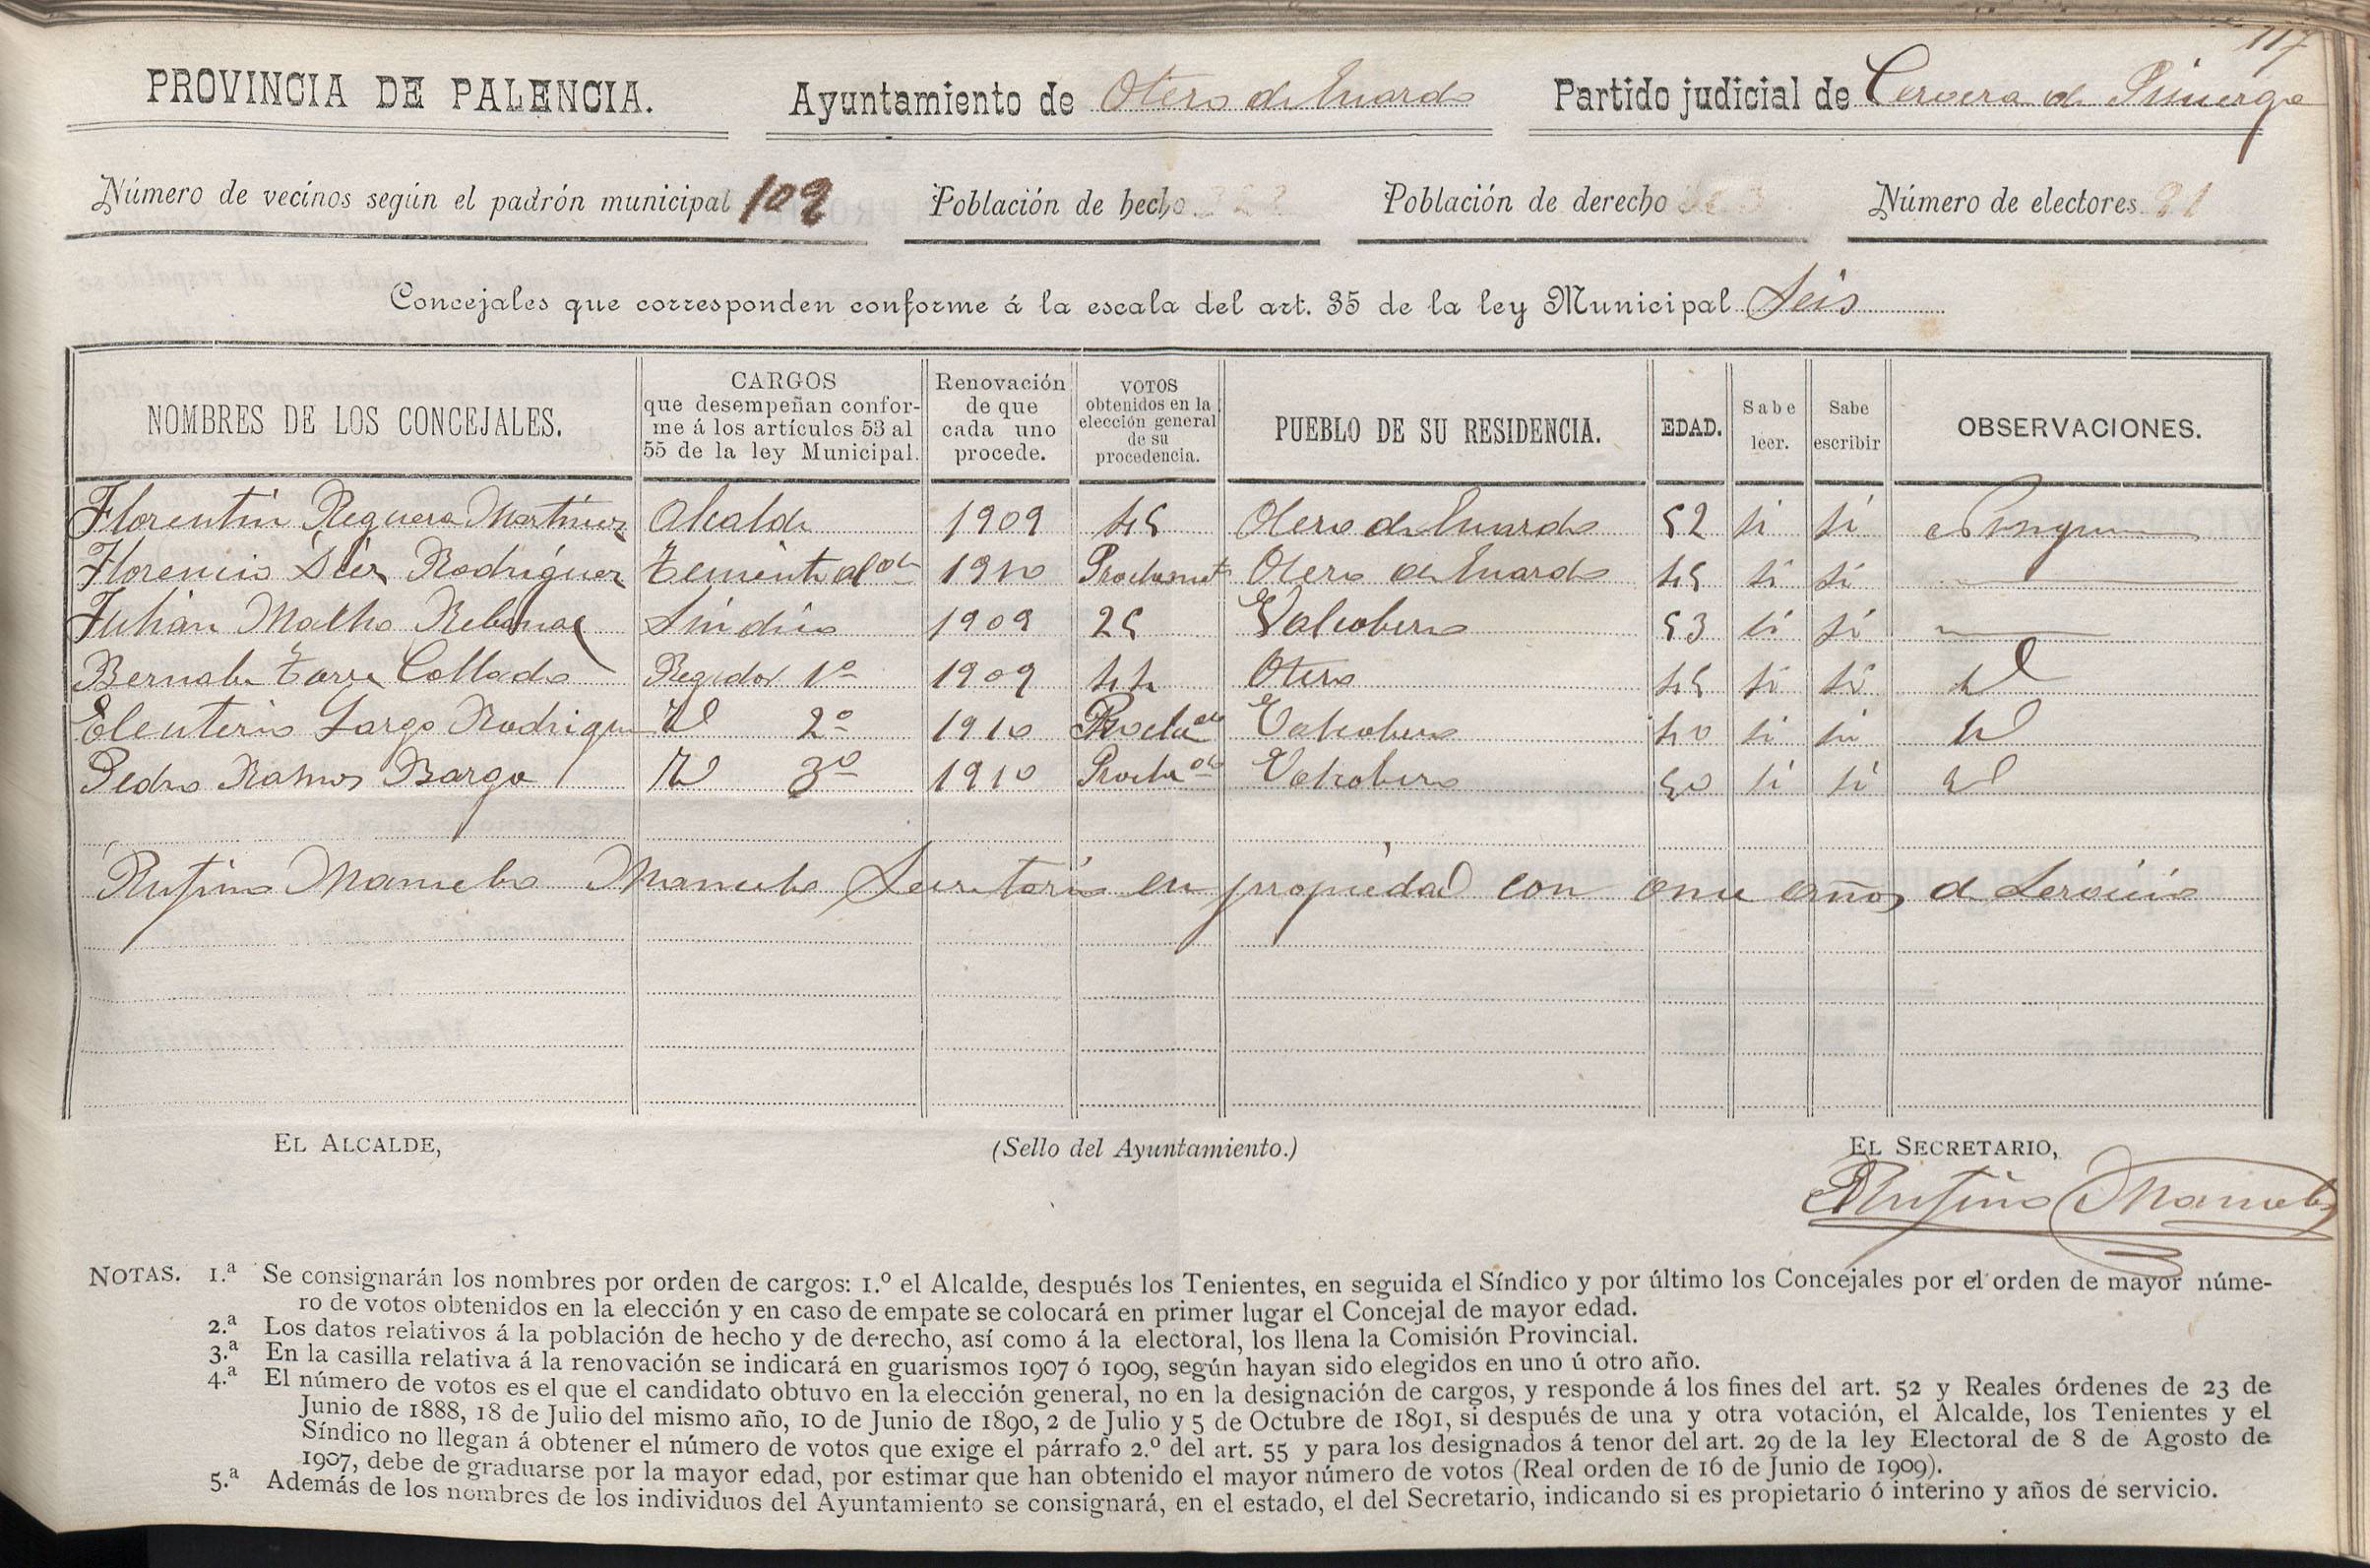 117
PROVINCIA DE PALENCIA. Ayuntamiento de Otero de Guardo Partido judicial de Cervera de Pisuerga
Número de vecinos según el padrón municipal 109 Población de hecho 322 Población de derecho Número de electores
Concejales que corresponden conforme á la escala del art. 35 de la ley Municipal Seis
NOMBRES DE LOS CONCEJALES. CARGOS que desempeñan confor-me á los artículos 53 al 55 de la ley Municipal. Renovación de que cada uno procede. VOTOS obtenidos en la elección general de su procedencia. PUEBLO DE SU RESIDENCIA. EDAD. Sabe leer. Sabe escribir OBSERVACIONES.
Florentin Reguera Martinez Alcalde 1909 45 Otero de Guardo 52 si si Ninguna
Florencio Diez Rodríguez Teniente alcde 1910 Otero de Guardo 45 si si
Julian Malho Rebanal Sindico 1909 25 Valcobero 53 si si
Bernabe Torre Collado Regidor 1º 1909 44 Otero 45 si si id
Eleuterio Largo Rodrigu id 2º 1910 Procldo Valcobero 40 si si id
Pedro Ramos Bargo id 3º 1910 Procldo Valcobero 50 si si id
Rufino Mancebo Mancebo Secretario en propiedad con once años de Servicio
EL ALCALDE, (Sello del Ayuntamiento.) EL SECRETARIO,
Rufino Mancebo
NOTAS. 1.ª Se consignarán los nombres por orden de cargos: 1.º el Alcalde, después los Tenientes, en seguida el Síndico y por último los Concejales por el orden de mayor núme-
ro de votos obtenidos en la elección y en caso de empate se colocará en primer lugar el Concejal de mayor edad.
2.ª Los datos relativos á la población de hecho y de derecho, así como á la electoral, los llena la Comisión Provincial.
3.ª En la casilla relativa á la renovación se indicará en guarismos 1907 ó 1909, según hayan sido elegidos en uno ú otro año.
4.ª El número de votos es el que el candidato obtuvo en la elección general, no en la designación de cargos, y responde á los fines del art. 52 y Reales órdenes de 23 de
Junio de 1888, 18 de Julio del mismo año, 10 de Junio de 1890, 2 de Julio y 5 de Octubre de 1891, si después de una y otra votación, el Alcalde, los Tenientes y el
Síndico no llegan á obtener el número de votos que exige el párrafo 2.º del art. 55 y para los designados á tenor del art. 29 de la ley Electoral de 8 de Agosto de
1907, debe de graduarse por la mayor edad, por estimar que han obtenido el mayor número de votos (Real orden de 16 de Junio de 1909).
5.ª Además de los nombres de los individuos del Ayuntamiento se consignará, en el estado, el del Secretario, indicando si es propietario ó interino y años de servicio.